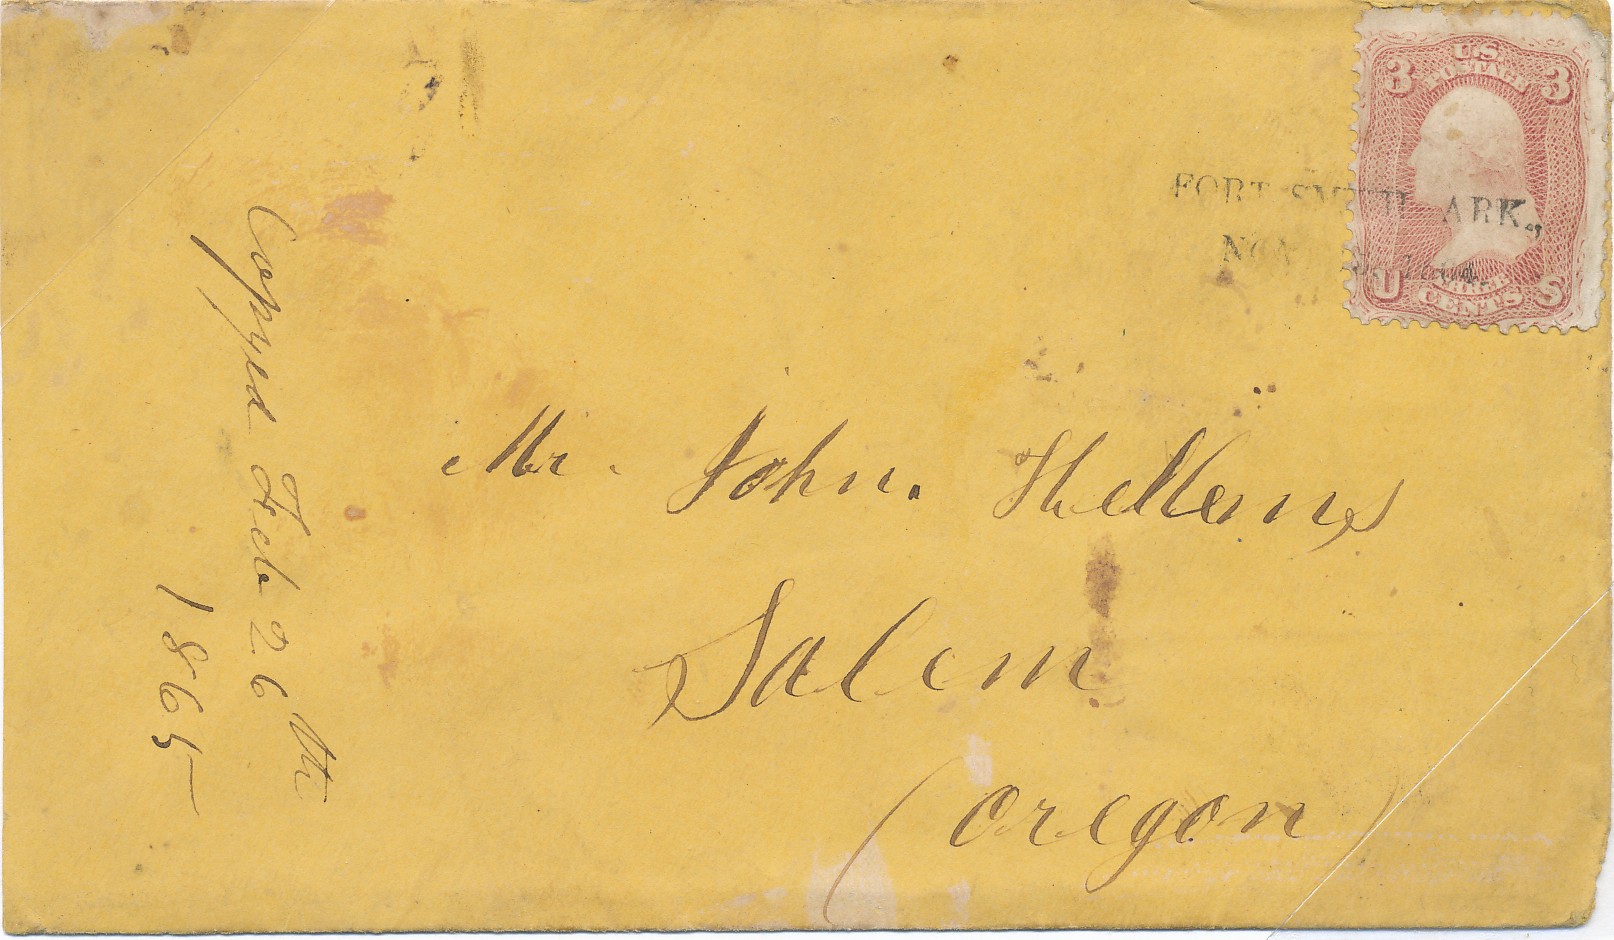 U.S.
POSTAGE
3 3
FORT SMITH ARK.,
NOV
U THREE S
CENTS
Mr. John. Hellems
Salem
(Oregon)
Copyed Feb 26th
1865